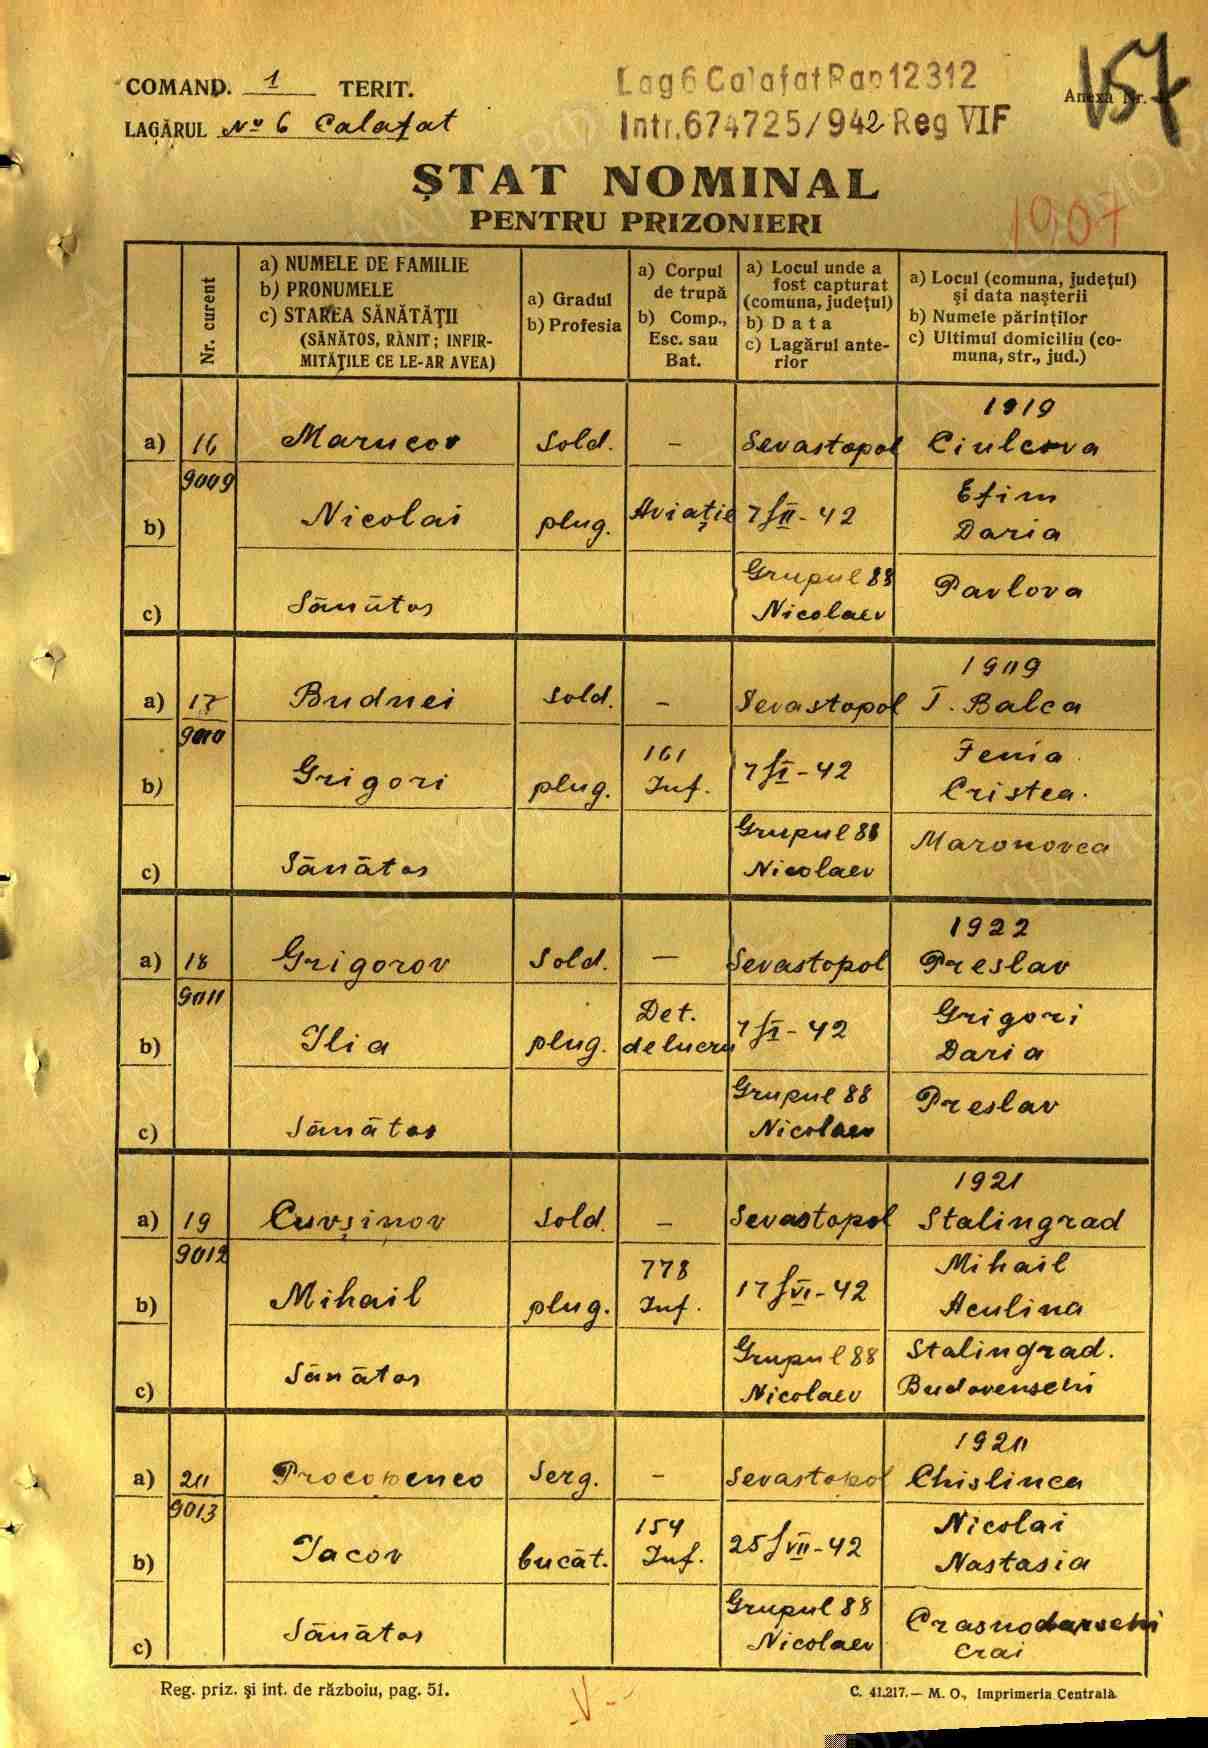 COMAND. 1 TERIT.
LAGĂRUL No 6 Calafat
Lag 6 Calafat Rap 12312
Intr. 674725/942 Reg VIF
Anexa Nr.
157
ȘTAT NOMINAL
PENTRU PRIZONIERI
1907
Nr. curent
a) NUMELE DE FAMILIE
b) PRONUMELE
c) STAREA SĂNĂTĂȚII
(SĂNĂTOS, RĂNIT; INFIR-
MITĂȚILE CE LE-AR AVEA)
a) Gradul
b) Profesia
a) Corpul
de trupă
b) Comp.,
Esc. sau
Bat.
a) Locul unde a
fost capturat
(comuna, județul)
b) Data
c) Lagărul ante-
rior
a) Locul (comuna, județul)
și data nașterii
b) Numele părinților
c) Ultimul domiciliu (co-
muna, str., jud.)
1919
a) 16 Marucov Sold. - Sevastopol Ciulcova
9009
Efim
b) Nicolai plug. Aviație 7/VII-42
Daria
Grupul 88 Pavlova
c) Sănătos Nicolaev
1909
a) 17 Budnei Sold. - Sevastopol T. Balca
9010
161 Fenia
b) Grigori plug. Inf. 7/VI-42 Cristea.
Grupul 88 Maronovca
c) Sănătos Nicolaev
1922
a) 18 Grigorov Sold. - Sevastopol Preslav
9011
Det. Grigori
b) Ilia plug. de lucru 7/VI-42 Daria
Grupul 88 Preslav
c) Sănătos Nicolaev
1921
a) 19 Cuvșinov Sold. - Sevastopol Stalingrad
9012
778 Mihail
b) Mihail plug. Inf. 17/VI-42 Aculina
Grupul 88 Stalingrad.
c) Sănătos Nicolaev Budovenschi
1920
a) 20 Procopenco Serg. - Sevastopol Chislinca
9013
154 Nicolai
b) Iacov bucăt. Inf. 25/VII-42 Nastasia
Grupul 88 Crasnodarschi
c) Sănătos Nicolaev crai
Reg. priz. și int. de război, pag. 51.
C. 41.217.— M. O., Imprimeria Centrală